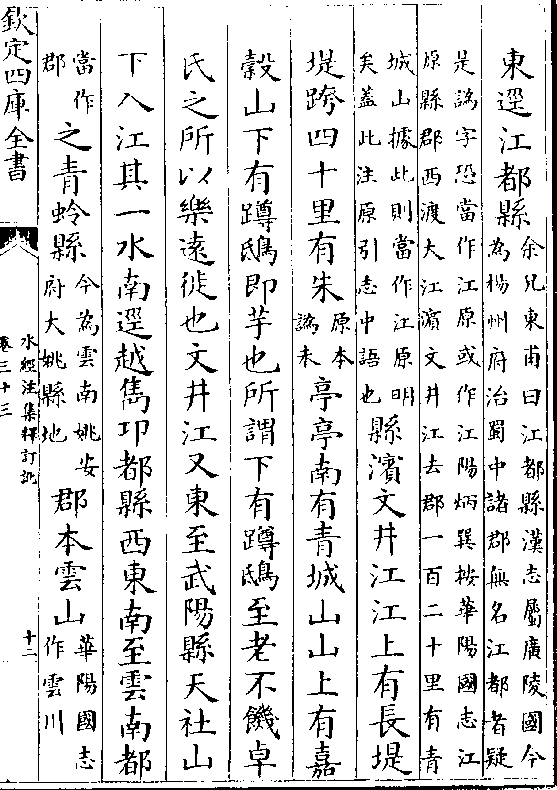 東逕江都縣余兄東甫曰江都縣漢志屬廣陵國今為楊州府治蜀中諸郡無名江都者疑
是譌字恐當作江原或作江陽炳巽按華陽國志江原縣郡西渡大江濵文井江去郡一百二十里有青
城山據此則當作江原明矣蓋此注原引志中語也縣濵文井江江上有長堤
堤跨四十里有朱原本譌未亭亭南有青城山山上有嘉
穀山下有蹲鴟即芋也所謂下有蹲鴟至老不饑卓
氏之所以樂遠徙也文井江又東至武陽縣天社山
下入江其一水南逕越雋卭都縣西東南至雲南都
當作郡之青蛉縣今為雲南姚安府大姚縣地郡本雲山華陽國志作雲川
欽定四庫全書
水經注集釋訂訛
卷三十三
十二